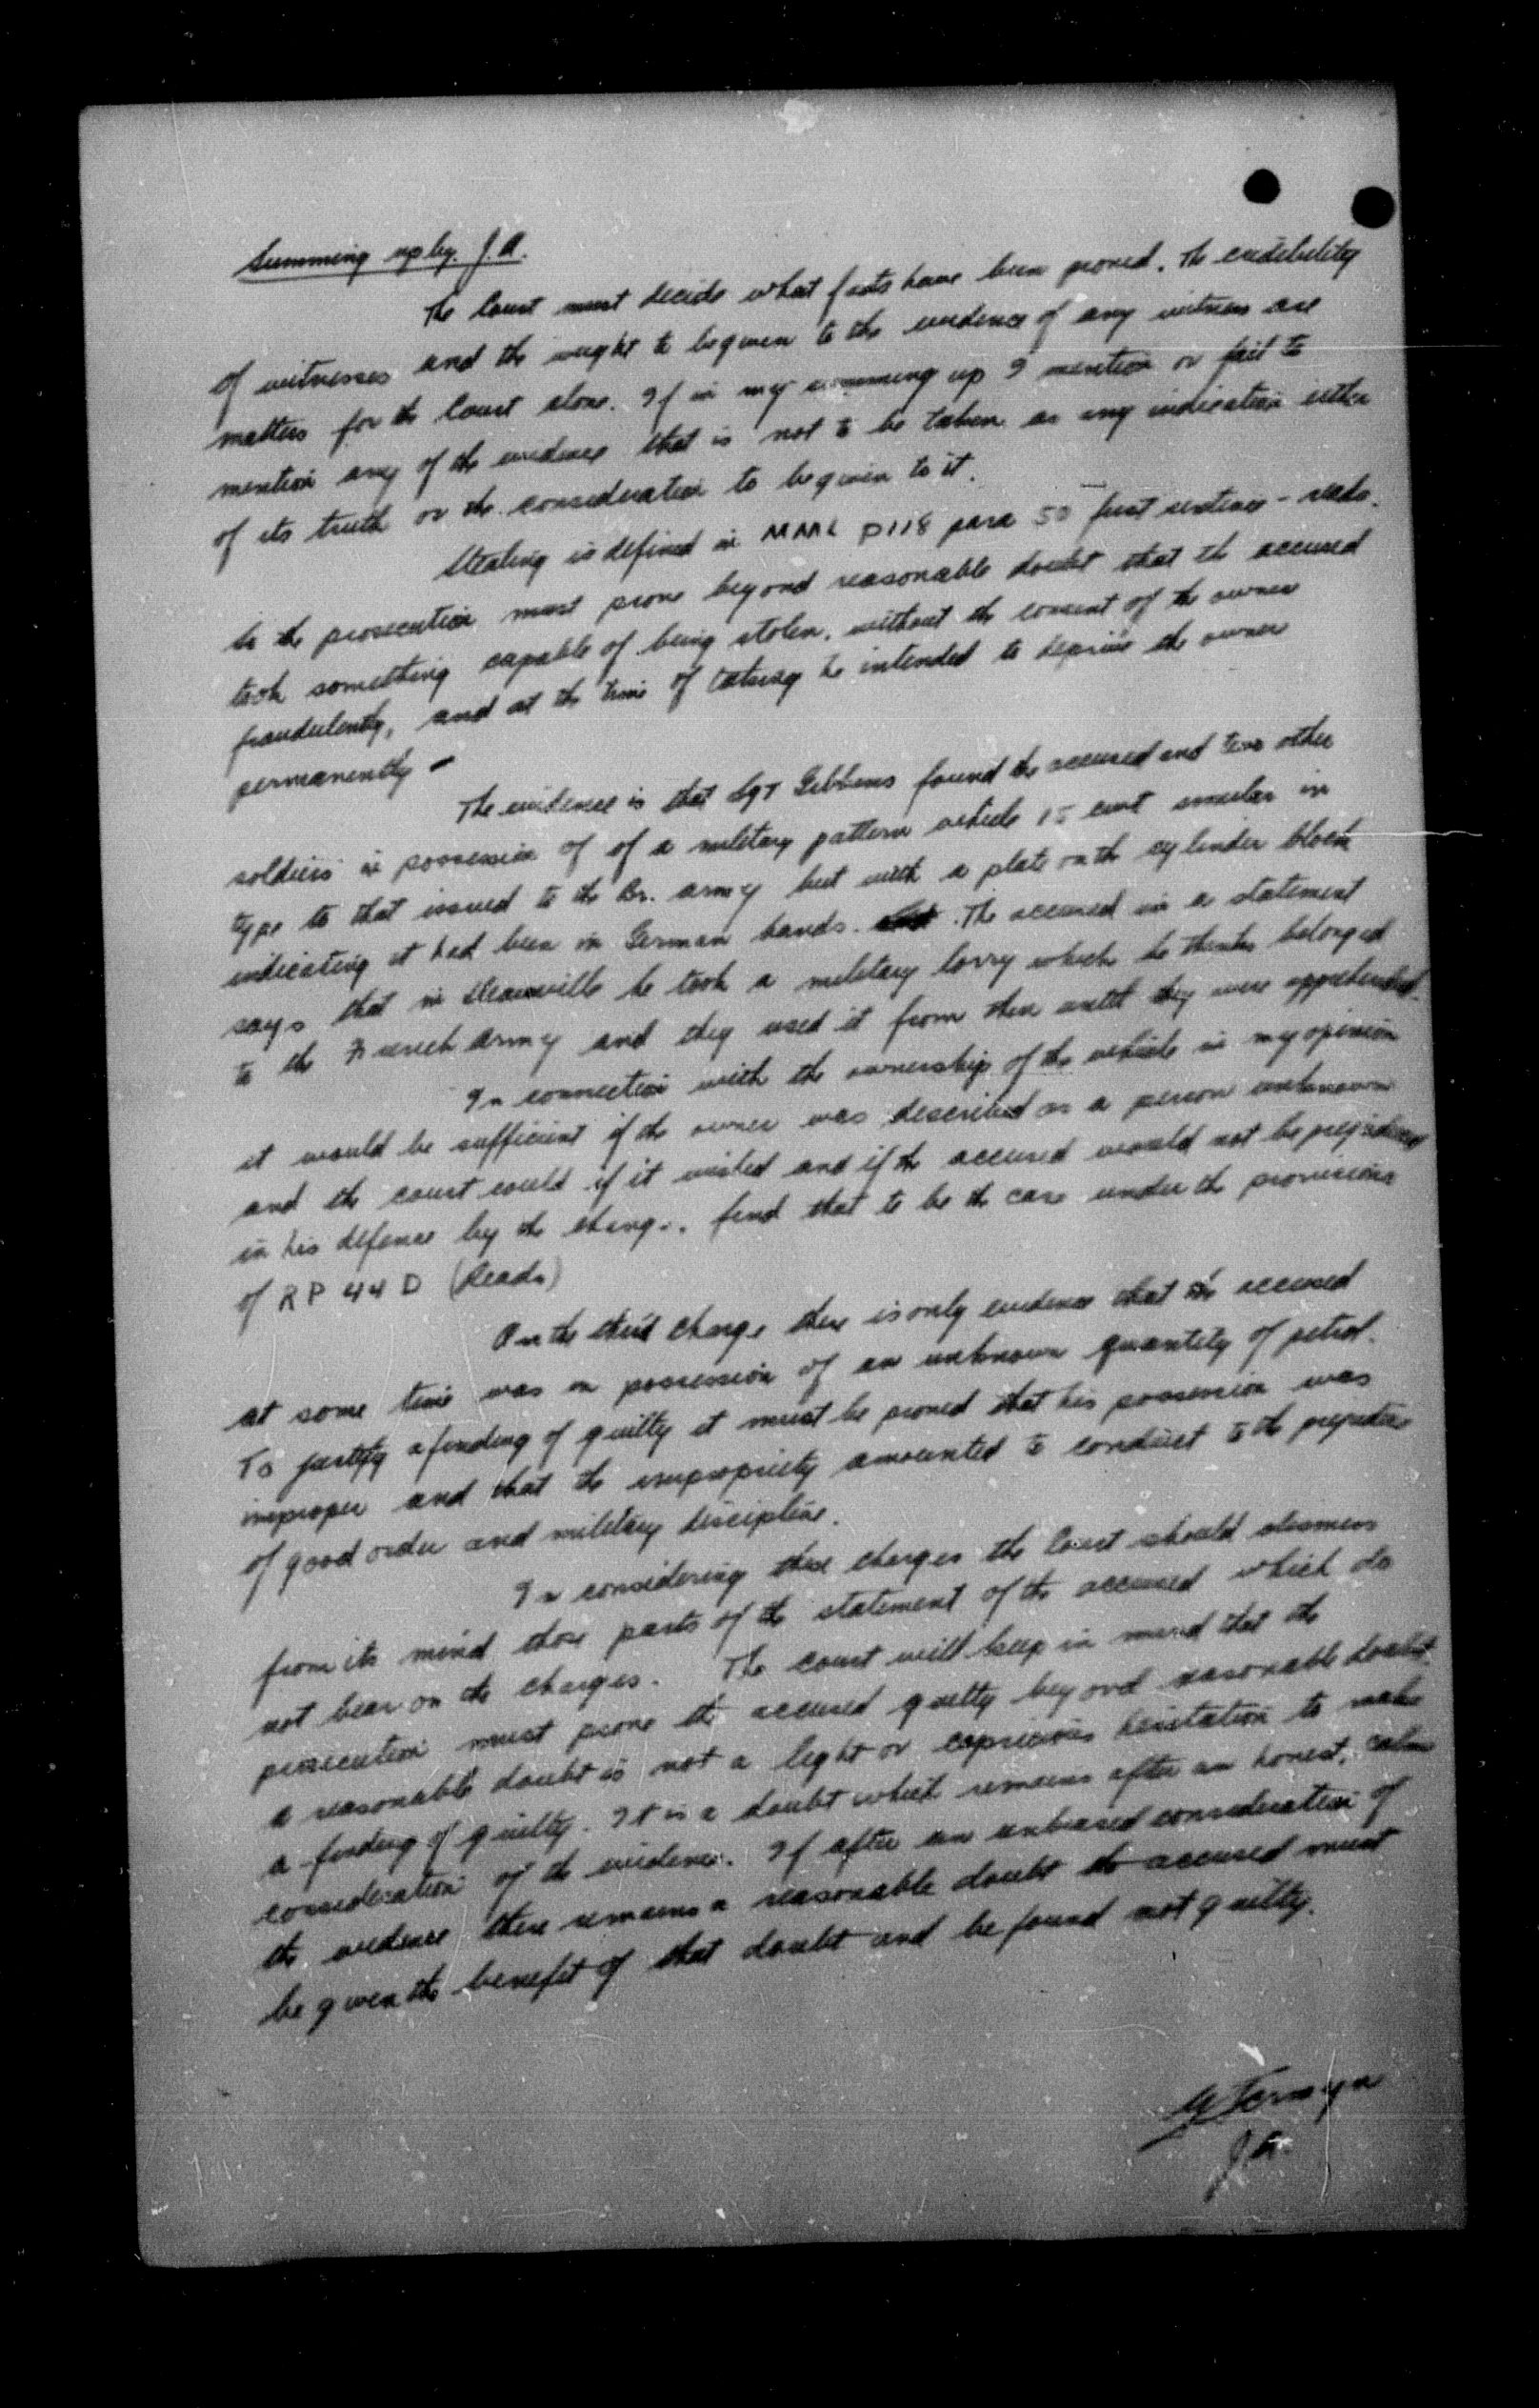 Summing up by. J.A.
The Court must decide what facts have been proved. The credibility
of witnesses and the weight to be given to the evidence of any witness are
matters for the Court alone. If in my summing up I mention or fail to
mention any of the evidence that is not to be taken as any indication either
of its truth or the consideration to be given to it.
Stealing is defined in MML p118 para 50 first sentence - reads.
So the prosecution must prove beyond reasonable doubt that the accused
took something capable of being stolen, without the consent of the owner
fraudulently, and at the time of taking he intended to deprive the owner
permanently -
The evidence is that Sgt Gibbons found the accused and two other
soldiers in possession of of a military pattern vehicle 15 cwt similar in
type to that issued to the Br. army but with a plate on the cylinder block
indicating it had been in German hands. The accused in a statement
says that in he took a military lorry which he thinks belonged
to the French Army and they used it from then until they were apprehended.
In connection with the ownership of the vehicle in my opinion
it would be sufficient if the owner was described as a person unknown
and the court could if it wished and if the accused would not be prejudiced
in his defence by the change, find that to be the case under the provisions
of RP 44 D (Reads)
On the third charge there is only evidence that the accused
at some time was in possession of an unknown quantity of petrol.
To justify a finding of guilty it must be proved that his possession was
improper and that the impropriety amounted to conduct to the prejudice
of good order and military discipline.
In considering these charges the Court should dismiss
from its mind those parts of the statement of the accused which do
not bear on the charges. The court will keep in mind that the
prosecution must prove the accused guilty beyond reasonable doubt.
A reasonable doubt is not a light or capricious hesitation to make
a finding of guilty. It is a doubt which remains after an honest, calm
consideration of the evidence. If after an unbiased consideration of
the evidence there remains a reasonable doubt the accused must
be given the benefit of that doubt and be found not guilty.
J.A.